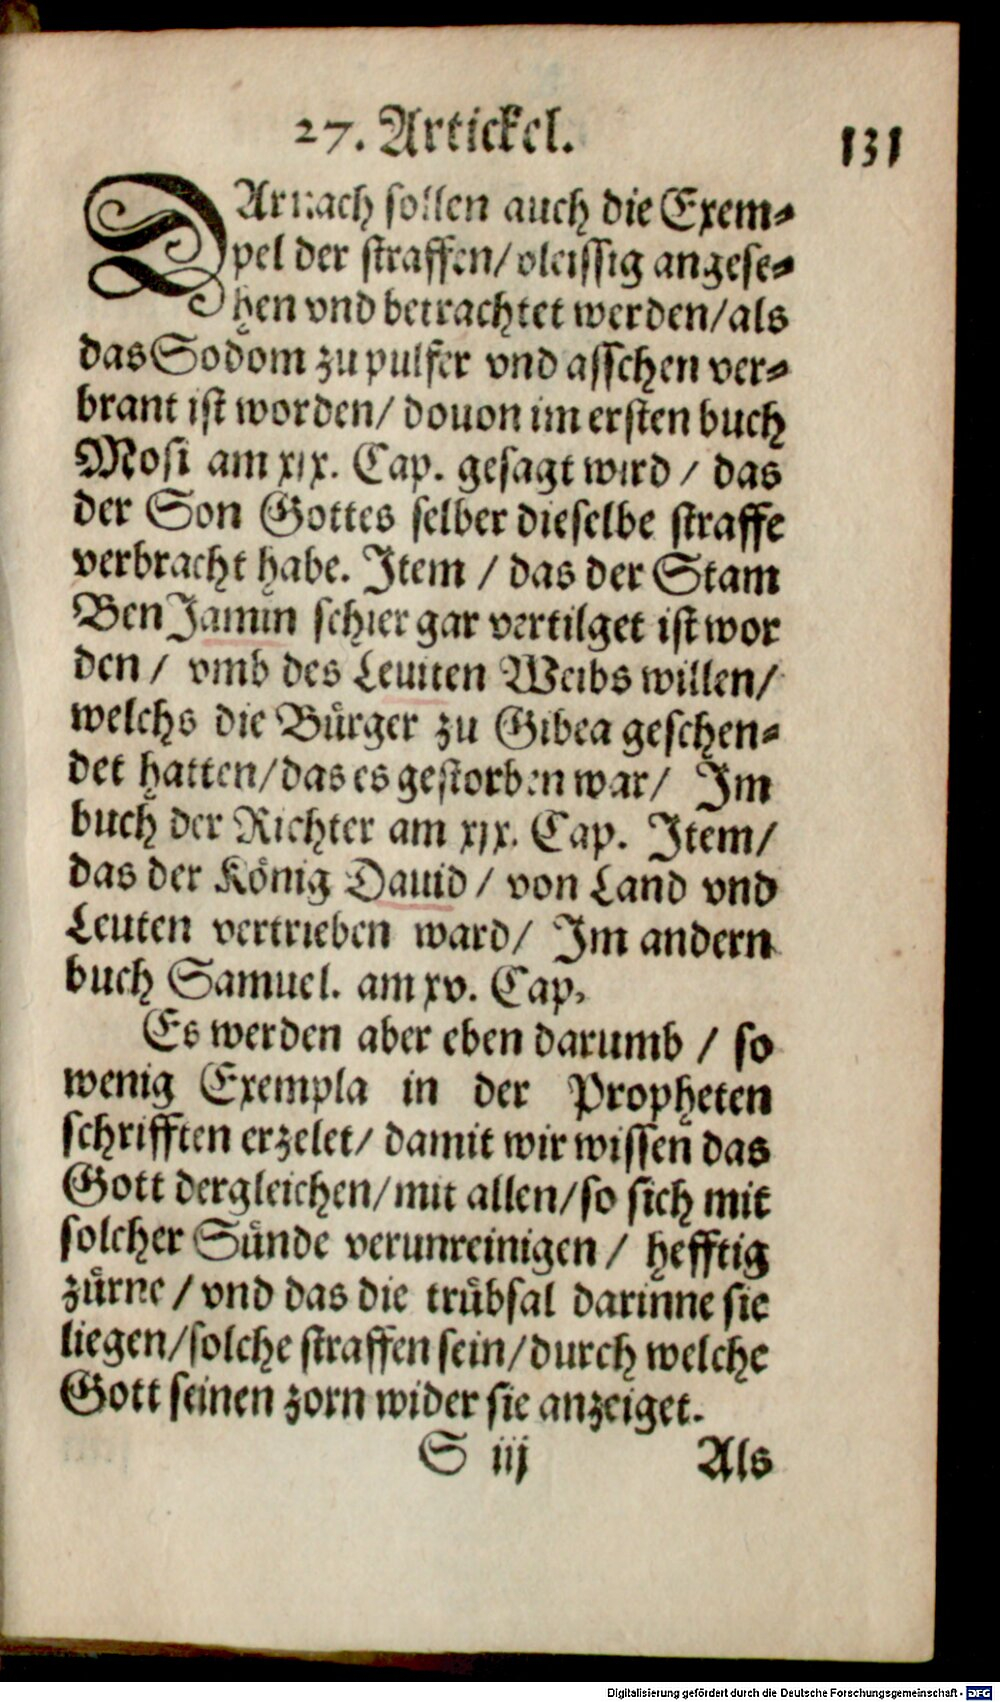 27. Artickel.
131
DArnach sollen auch die Exem⸗
pel der straffen/ vleissig angese⸗
hen vnd betrachtet werden/als
das Sodom zu pulfer vnd asschen ver⸗
brant ist worden/ douon im ersten buch
Mosi am xix. Cap. gesagt wird / das
der Son Gottes selber dieselbe straffe
verbracht habe. Item / das der Stam
Ben Jamin schier gar vertilget ist wor
den / vmb des Leuiten Weibs willen/
welchs die Bürger zu Gibea geschen⸗
det hatten/das es gestorben war/ Im
buch der Richter am xix. Cap. Item/
das der König Dauid / von Land vnd
Leuten vertrieben ward/ Im andern
buch Samuel. am xv. Cap.
Es werden aber eben darumb / so
wenig Exempla in der Propheten
schrifften erzelet/ damit wir wissen das
Gott dergleichen/mit allen/so sich mit
solcher Sünde verunreinigen / hefftig
zürne / vnd das die trübsal darinne sie
liegen/solche straffen sein/durch welche
Gott seinen zorn wider sie anzeiget.
S iij Als
Digitalisierung gefördert durch die Deutsche Forschungsgemeinschaft - DFG